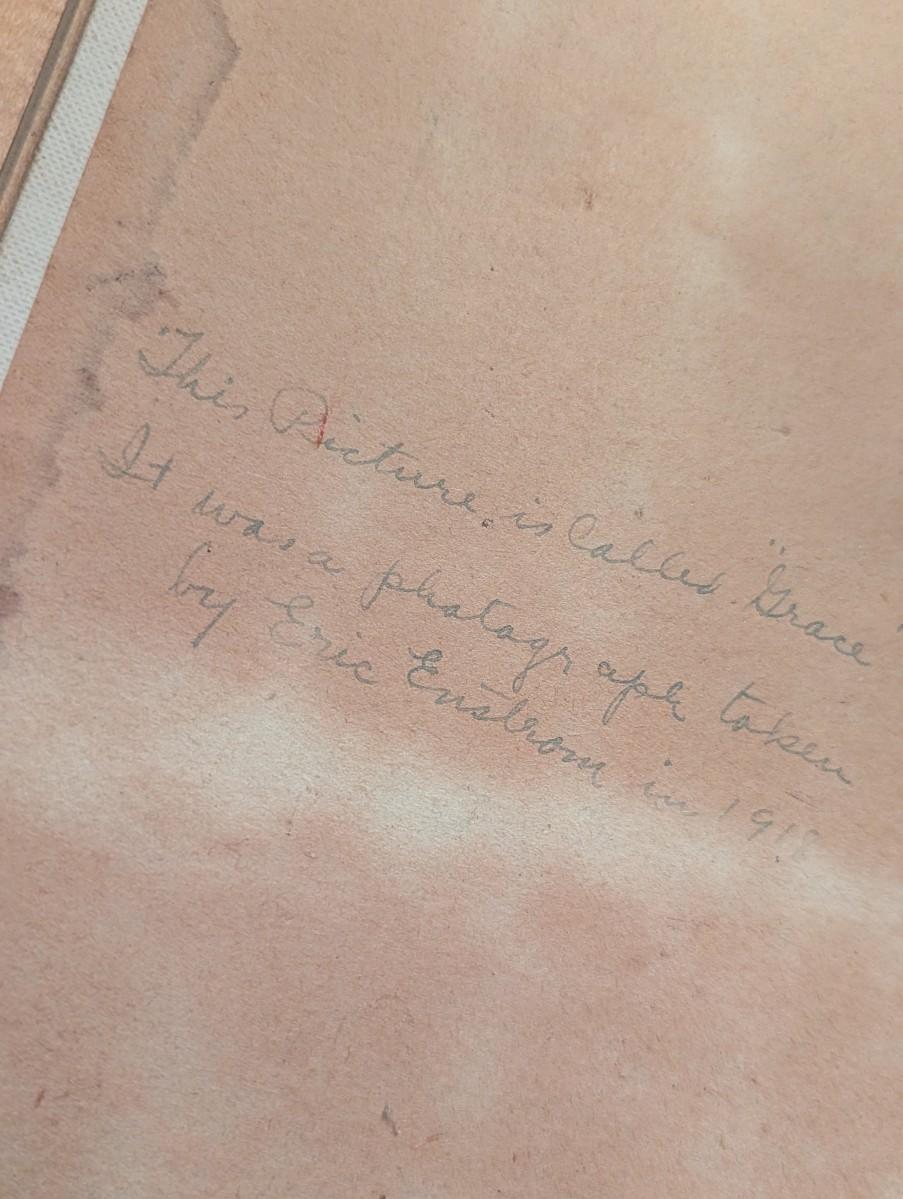 This Picture is Called "Grace"
It was a photograph taken
by Eric Enstrom in 1918